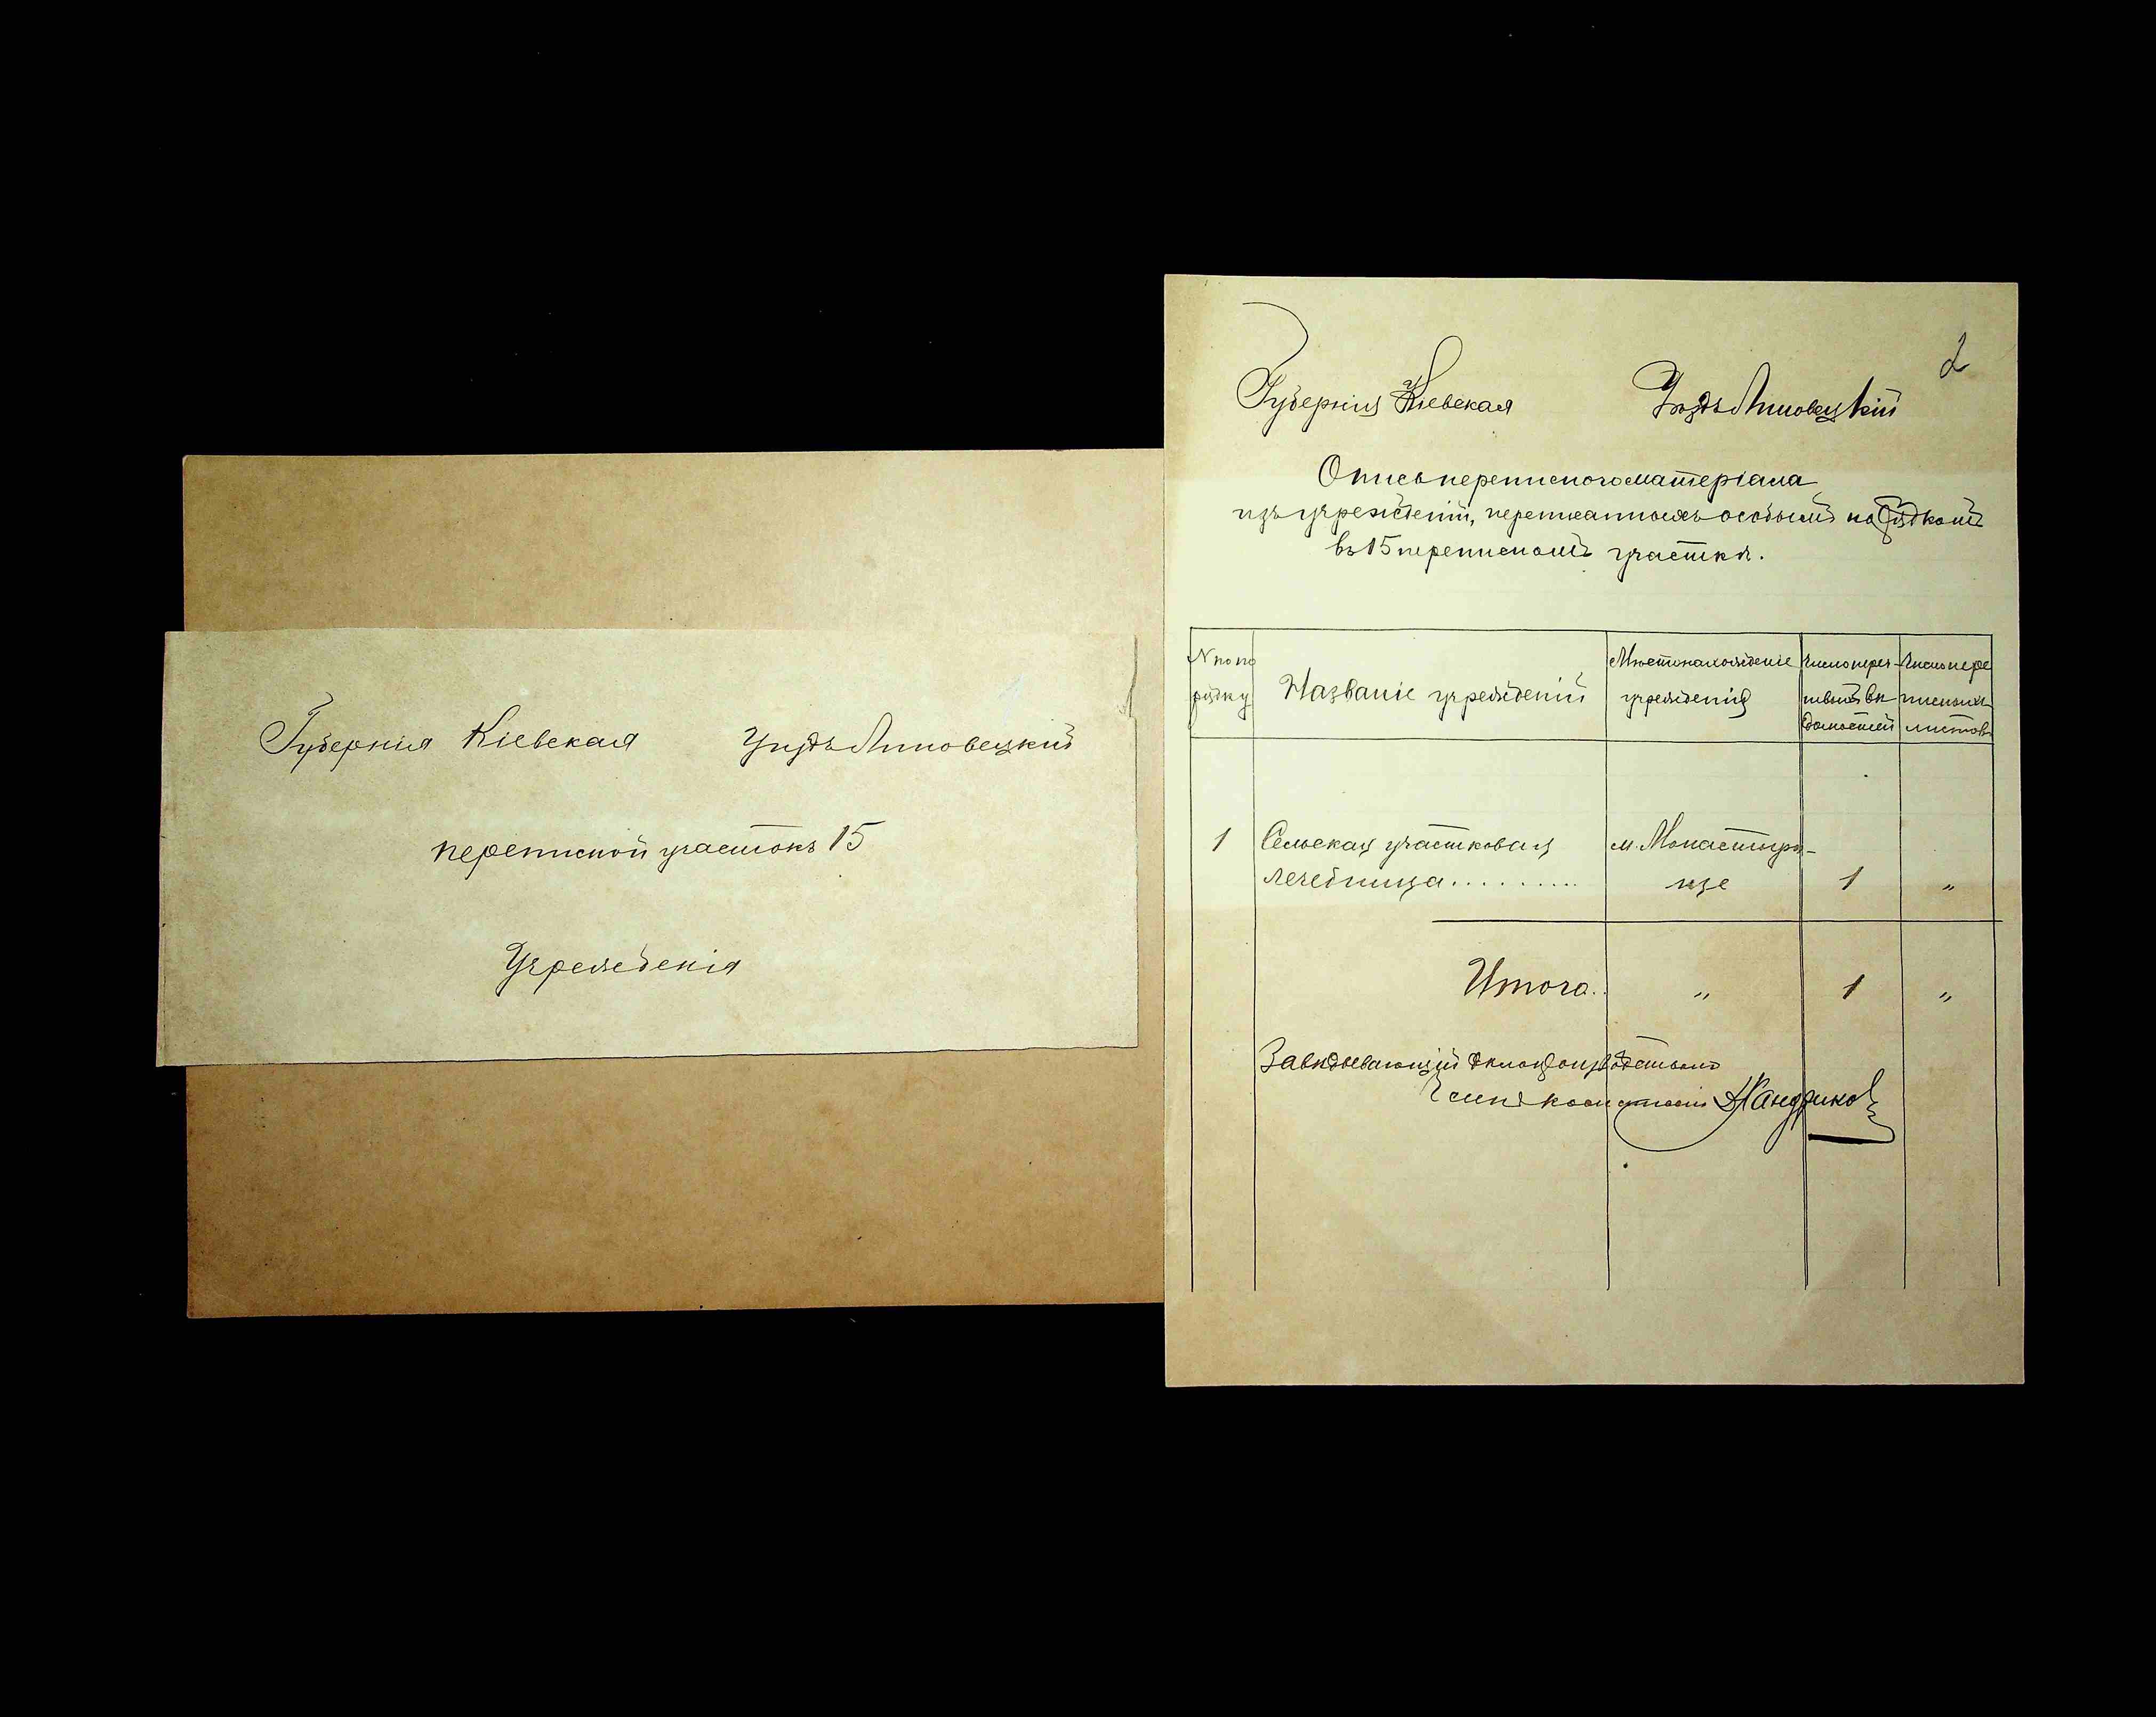 Губернія Кіевская Уѣздъ Липовецкій
переписной участокъ 15
Учрежденія
2
Губернія Кіевская Уѣздъ Липовецкій
Опись переписного матеріала
изъ учрежденій, переписанныхъ особымъ порядкомъ
въ 15 переписномъ участкѣ.
N по по
рядку
Названіе учрежденій
Мѣстонахожденіе
учрежденія
Число переч-
невыхъ вѣ-
домостей
Число пере
писныхъ
листовъ
1 Сельская участковая м. Монастыри-
лечебница.......... ще 1 "
Итого.. " 1 "
Завѣдывающій дѣлопроизводствомъ